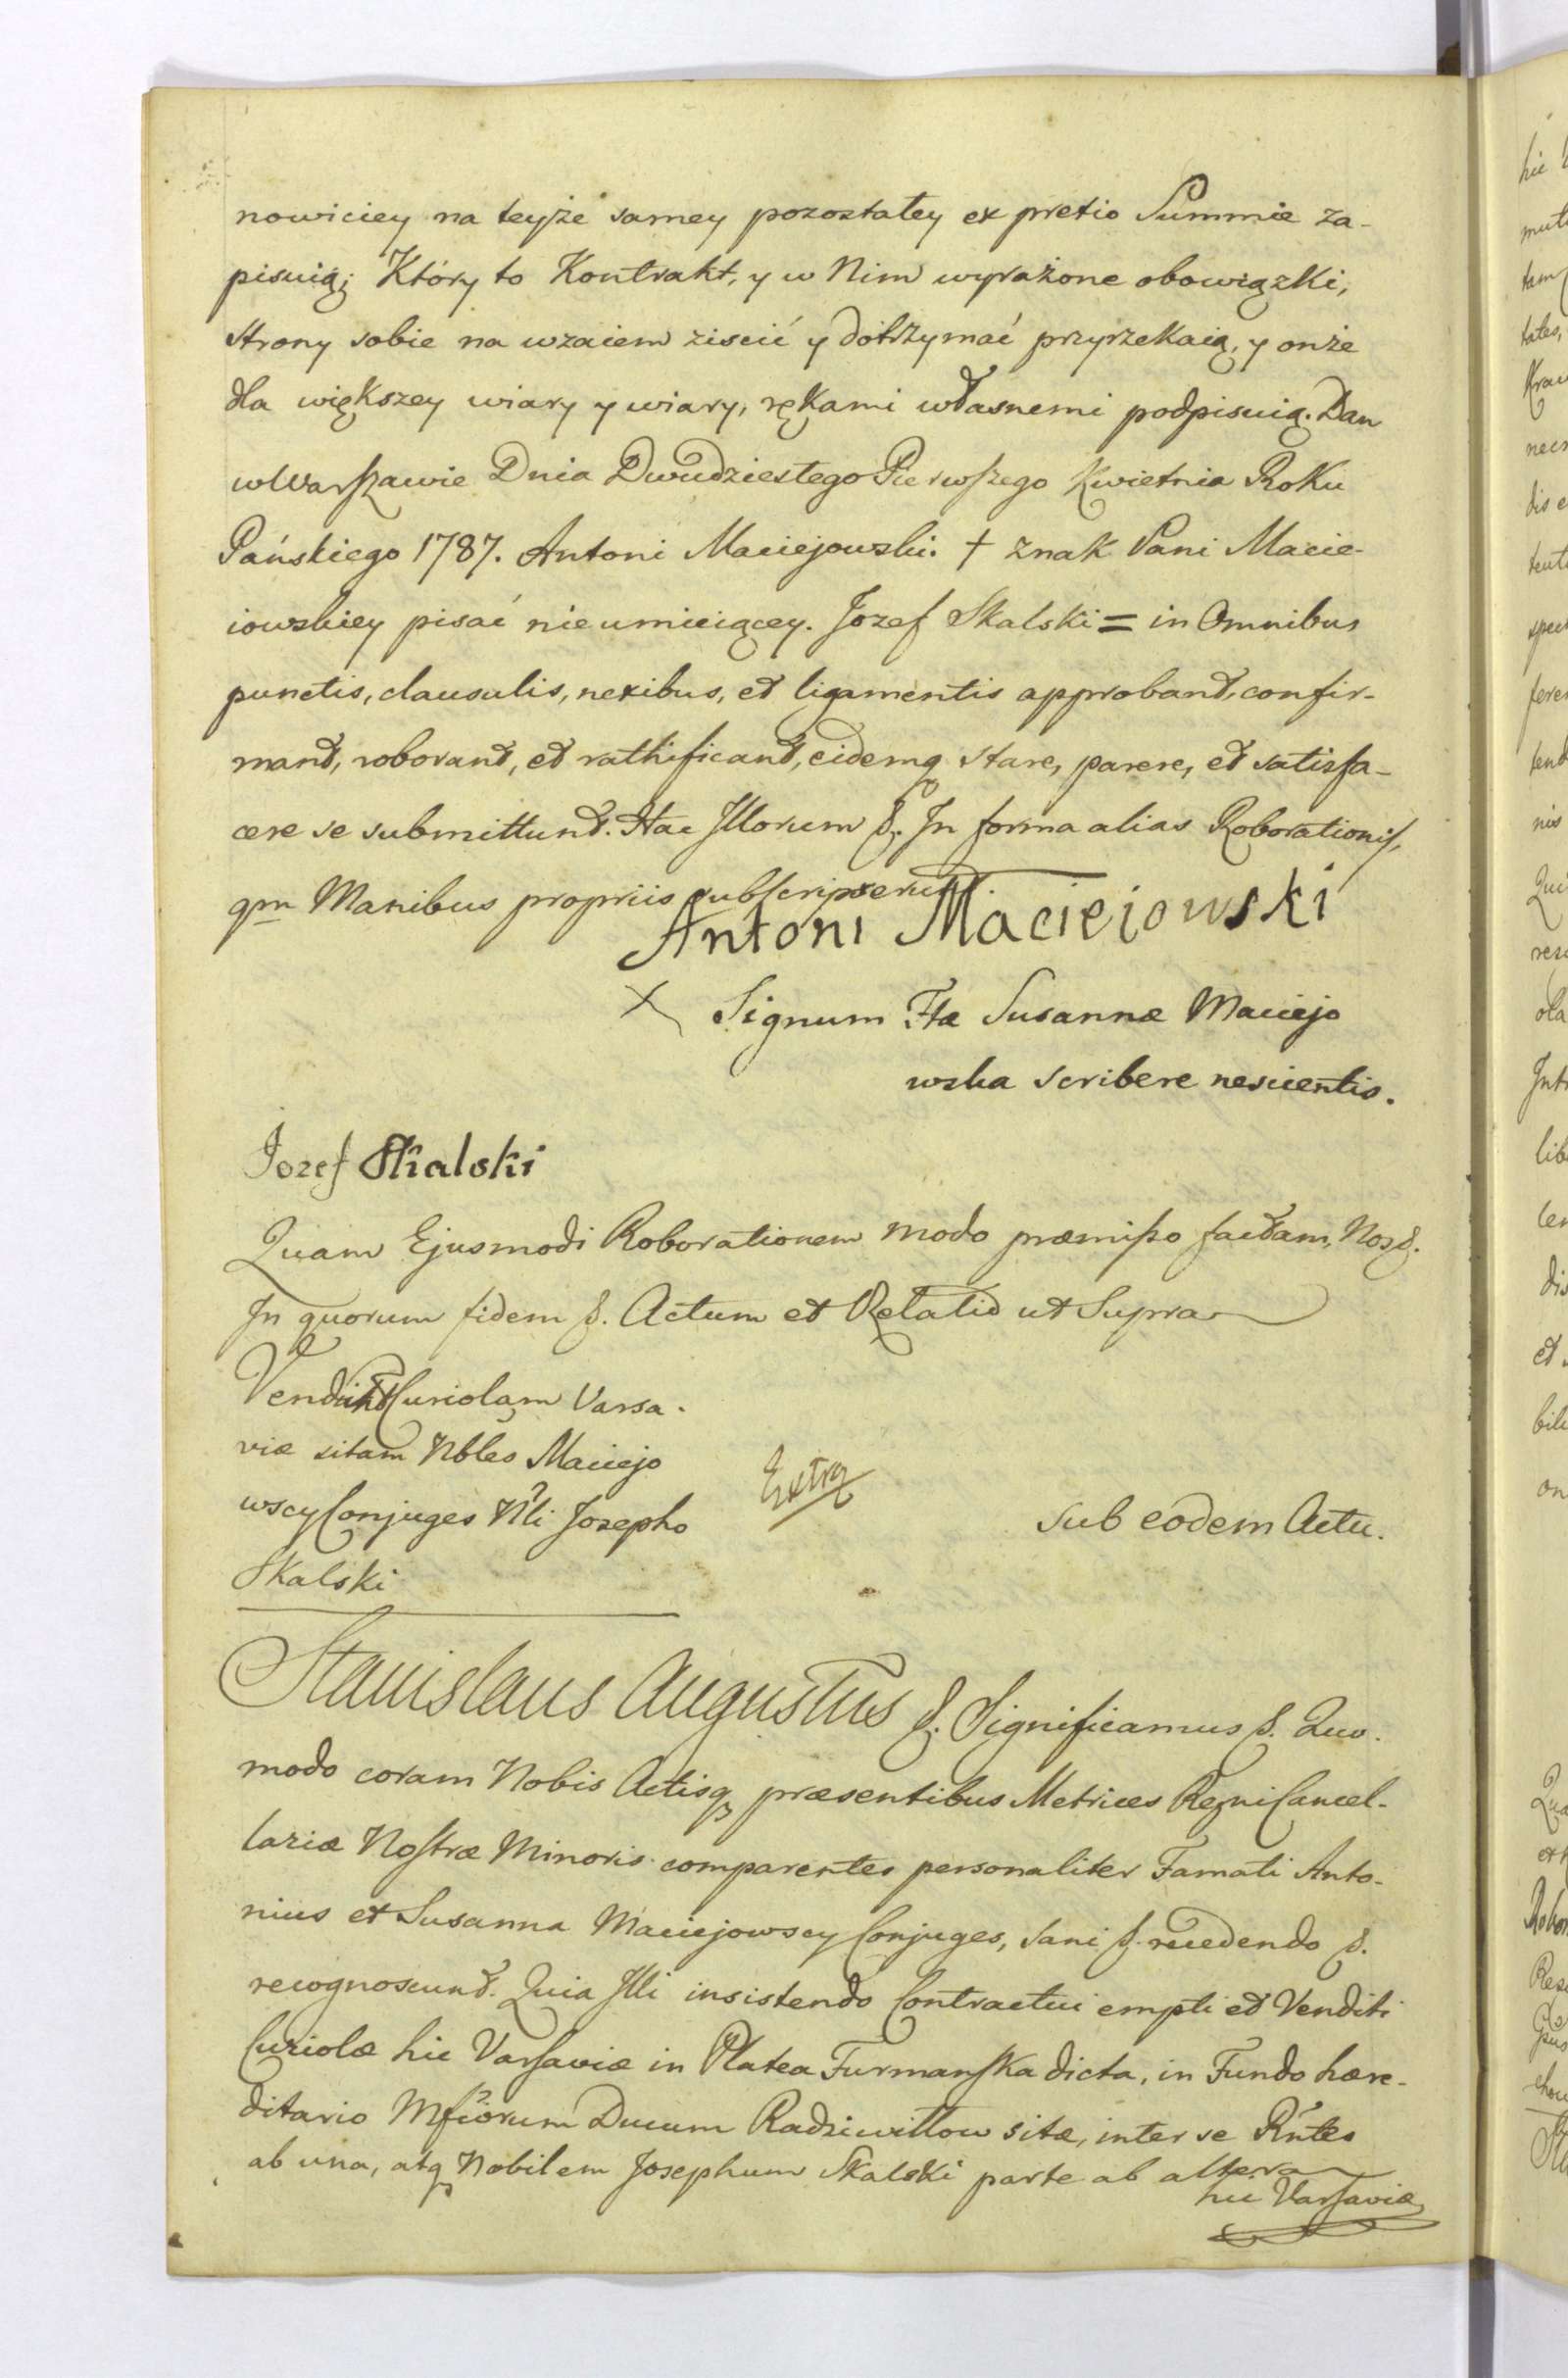 nowiciey na teyże samey pozostałey ex pretio Summie za-
pisuią; Który to Kontrakt, y w Nim wyrażone obowiązki,
strony sobie na wzaiem ziscić y dotrzymać przyrzekaią, y onże
dla większey wiary y wiary, rękami własnemi podpisuią. Dan
w Warszawie Dnia Dwudziestego Pierwszego Kwietnia Roku
Pańskiego 1787. Antoni Maciejowski. † znak Pani Macie-
iowskiey pisać nie umieiącey. Jozef Skalski = in Omnibus
punctis, clausulis, nexibus, et ligamentis approbant, confir-
mant, roborant, et rathificant, eidemq stare, parere, et satisfa-
cere se submittunt. Hac Illorum &. In forma alias Roborationis,
qm Manibus propriis subscripserunt.
Antoni Maciejowski
X Signum Ftæ Susannæ Maciejo
wska scribere nescientis.
Jozef Skalski
Quam Ejusmodi Roborationem modo præmisso factam, Nos &.
In quorum fidem &. Actum et Relatio ut Supra
Vendunt Curiolam Varsa-
viæ sitam Nbles Maciejo
wscy Conjuges Nli Josepho
Skalski
Extra
sub eodem Actu.
Stanislaus Augustus &. Significamus &. Quo-
modo coram Nobis Actisq præsentibus Metrices Regni Cancel-
lariæ Nostræ Minoris comparentes personaliter Famati Anto-
nius et Susanna Maciejowscy Conjuges, sani &. recedendo &.
recognoscunt. Quia Illi insistendo Contractui empti et Venditi
Curiolæ hic Varsaviæ in Platea Furmanska dicta, in Fundo hære-
ditario Mfcorum Ducum Radziwiłłow sitæ, inter se Rntes
ab una, atq Nobilem Josephum Skalski parte ab altera
hic Varsaviæ